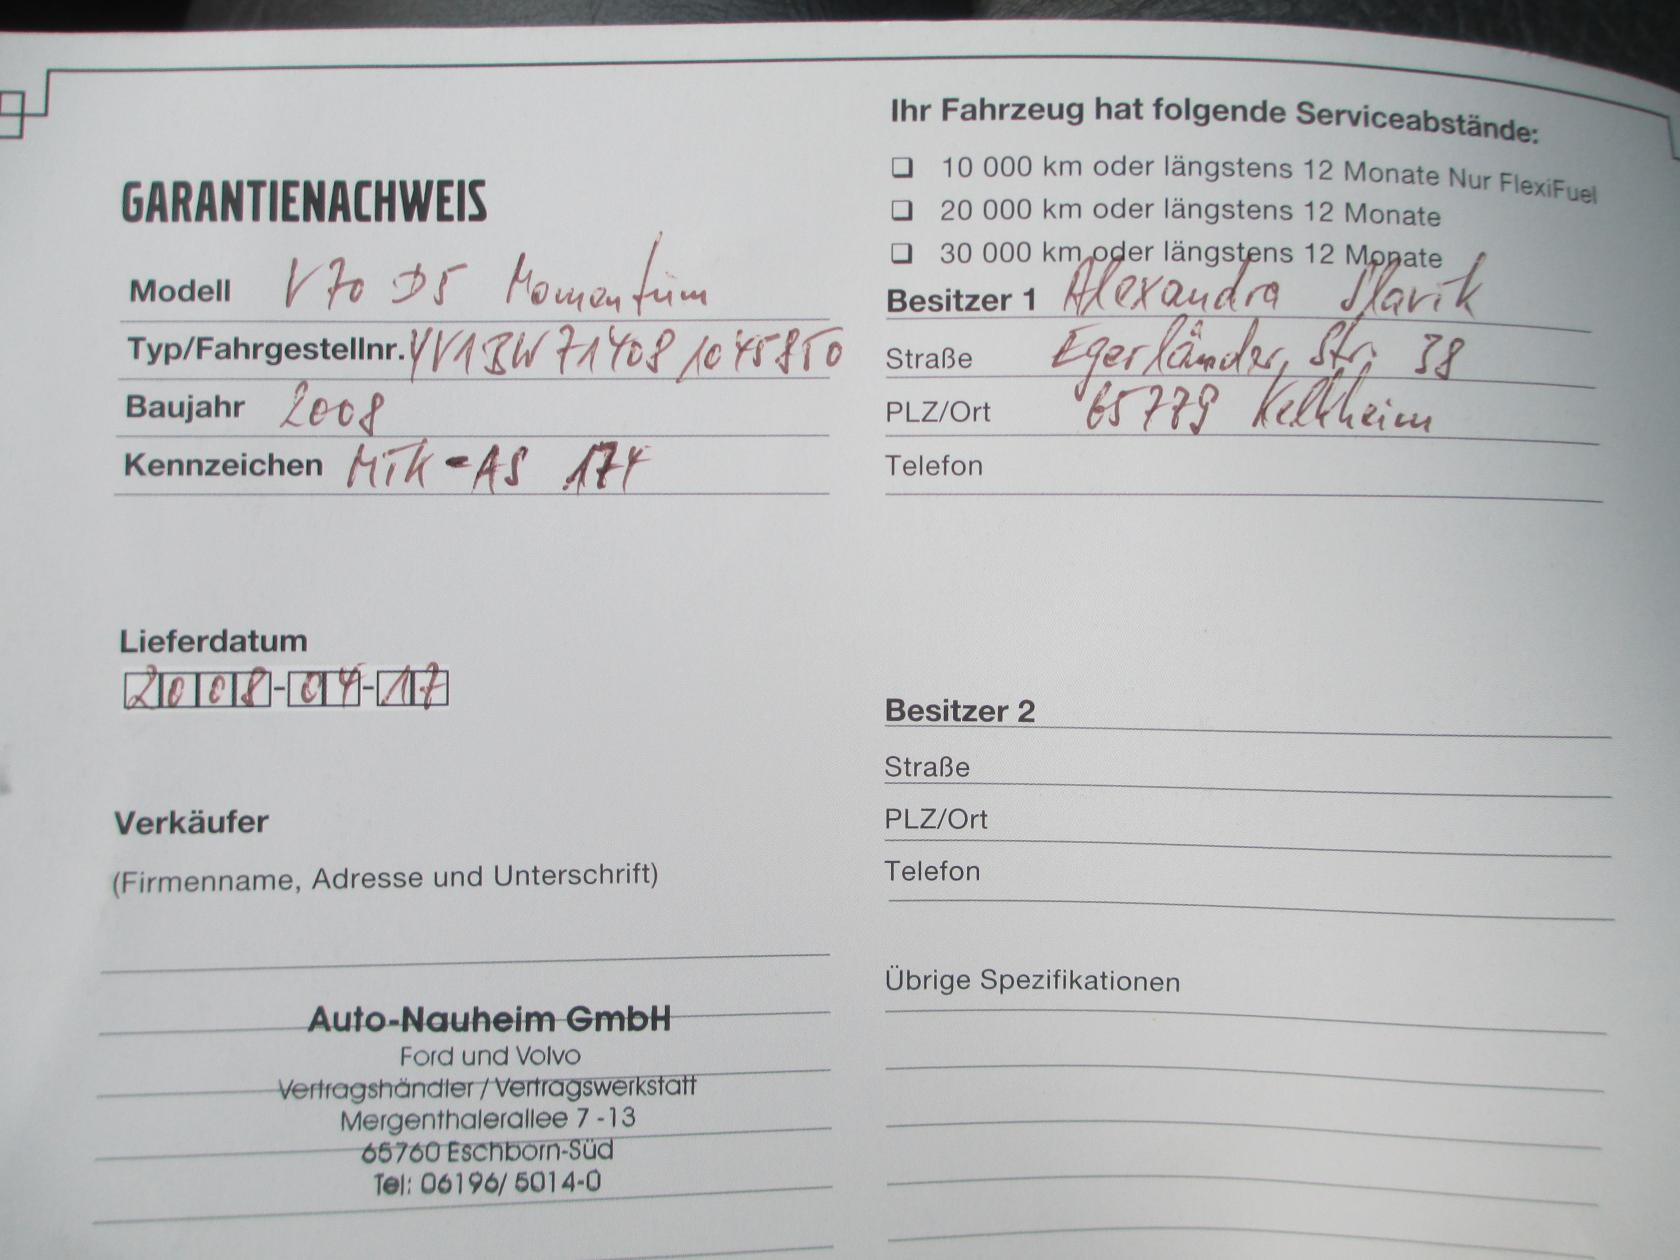 GARANTIENACHWEIS
Modell V70 D5 Momentum
Typ/Fahrgestellnr. YV1BW714081045850
Baujahr 2008
Kennzeichen MTK-AS 174
Lieferdatum
2008-04-17
Verkäufer
(Firmenname, Adresse und Unterschrift)
Auto-Nauheim GmbH
Ford und Volvo
Vertragshändler / Vertragswerkstatt
Mergenthalerallee 7 -13
65760 Eschborn-Süd
Tel: 06196/ 5014-0
Ihr Fahrzeug hat folgende Serviceabstände:
❏ 10 000 km oder längstens 12 Monate Nur FlexiFuel
❏ 20 000 km oder längstens 12 Monate
❏ 30 000 km oder längstens 12 Monate
Besitzer 1 Alexandra Slavik
Straße Egerländer Str. 38
PLZ/Ort 65779 Kelkheim
Telefon
Besitzer 2
Straße
PLZ/Ort
Telefon
Übrige Spezifikationen